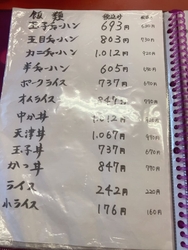 飯類 税込み
玉子チャーハン 693円
五目チャーハン 803円 730円
カニチャーハン 1,012円
半チャーハン 605円
ポークライス 737円
オムライス
中か丼 1,012円
天津丼 1,067円
玉子丼 737円
かつ丼 847円
ライス 242円 220円
小ライス 176円 160円